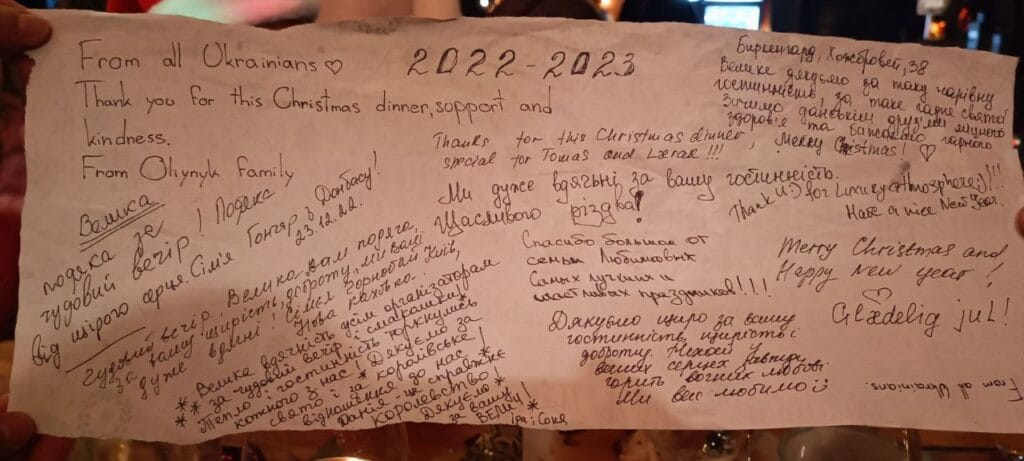 From all Ukrainians ♡
Thank you for this Christmas dinner, support and
kindness.
From Oliynyk family
2022-2023
Биргенгард, 38
Велике дякуємо за таку чарівну
гостинність, за таке гарне свято!
Зичимо данським друзям міцного
здоров'я та гарного
Merry Christmas! ♡
Thanks for this Christmas dinner,
special for Tomas and Lærak!!!
Ми дуже вдячні за вашу гостинність.
Щасливого різдва!
Thank U:) for Luxury atmosphere;)!!!
Have a nice New Year.
Велика
подяка за
чудовий вечір! Подяка
від щирого серця. Сім'я Гонгяр з Донбасу!
23.12.22.
Чудовий вечір. Велика Вам подяка,
за вашу щирість, доброту, ми Вам
дуже вдячні! Сім'я Київ,
Нова Каховка.
Велика вдячність усім організаторам
* за чудовий вечір і смаколики!
* Тепло і гостинність торкнулись
* кожного з нас * Дякуємо за
свято і за королівське
відношення до нас!
Данія - це справжнє
королівство!
Дякуємо
за вашу
Іра і Соня
Спасибо большое от
семьи Любимовых
Самых лучших и
счастливых праздников!!!
Дякуємо щиро за вашу
гостинність, щирість і
доброту. Нехай у
ваших серцях завжди
горить вогник любові
Ми вас любимо
Merry Christmas and
Happy New year!
♡
Glædelig jul!
From all Ukrainians.